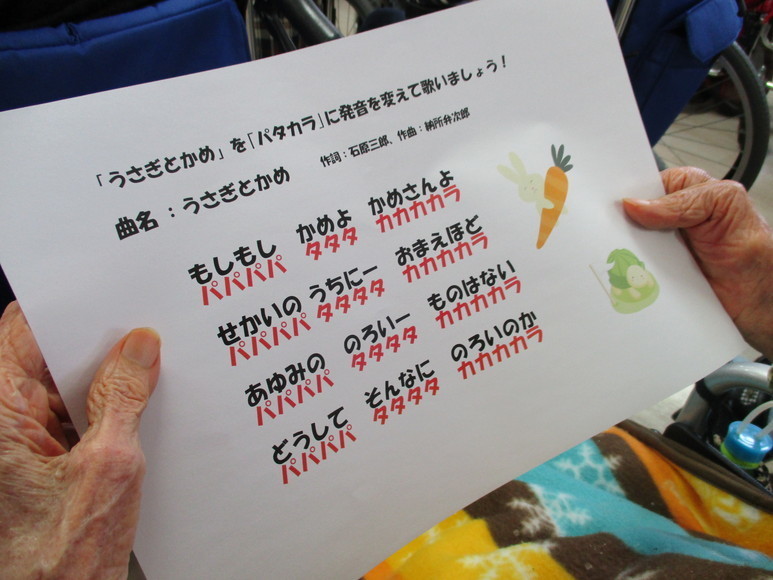 「うさぎとかめ」を「パタカラ」に発音を変えて歌いましょう！
曲名：うさぎとかめ　作詞：石原三郎、作曲：納所弁次郎
もしもし　かめよ　かめさんよ
パパパパ　タタタ　カカカカラ
せかいの　うちにー　おまえほど
パパパパ　タタタタ　カカカカラ
あゆみの　のろいー　ものはない
パパパパ　タタタタ　カカカカラ
どうして　そんなに　のろいのか
パパパパ　タタタタ　カカカカラ